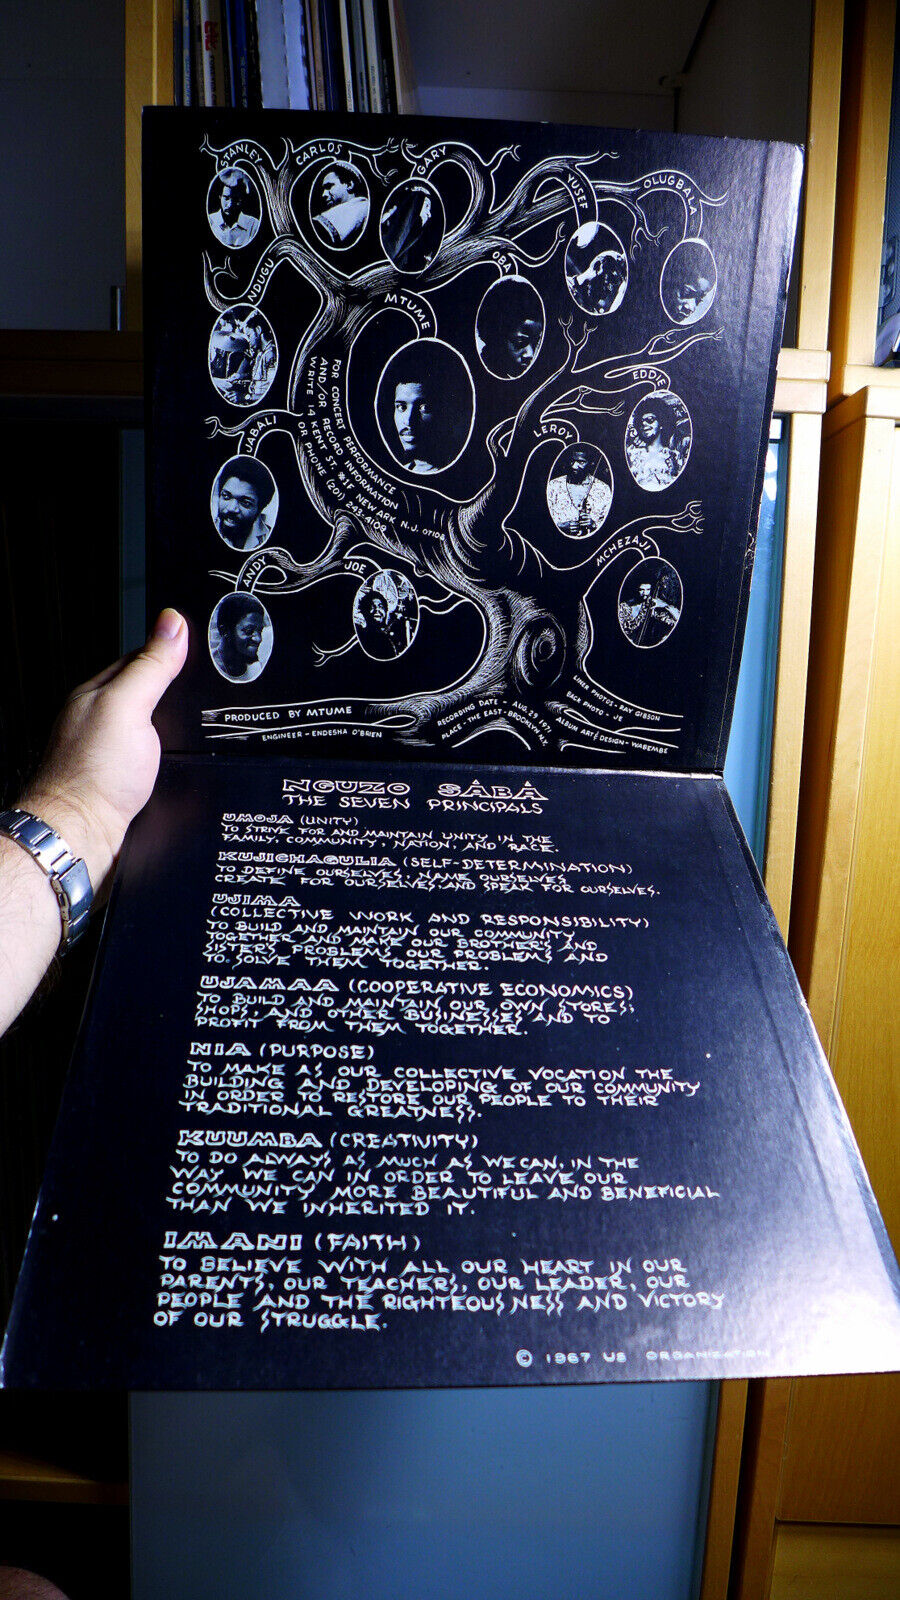 STANLEY
CARLOS
GARY
YUSEF
OLUGBALA
NDUGU
MTUME
OBA
EDDIE
JABALI
LEROY
FOR CONCERT PERFORMANCE
AND/OR RECORD INFORMATION
WRITE 14 KENT ST. #1F NEW ARK N.J. 07108
OR PHONE (201) 243-4109
ANDY
JOE
MCHEZAJI
PRODUCED BY MTUME
ENGINEER - ENDESHA O'BRIEN
RECORDING DATE - AUG. 29 1971
PLACE - THE EAST - BROOKLYN N.Y.
LINER PHOTOS - RAY GIBSON
BACK PHOTO - JE
ALBUM ART & DESIGN - WABEMBE
NGUZO SABA
THE SEVEN PRINCIPALS
UMOJA (UNITY)
TO STRIVE FOR AND MAINTAIN UNITY IN THE
FAMILY, COMMUNITY, NATION, AND RACE.
KUJICHAGULIA (SELF-DETERMINATION)
TO DEFINE OURSELVES, NAME OURSELVES
CREATE FOR OURSELVES, AND SPEAK FOR OURSELVES.
UJIMA
(COLLECTIVE WORK AND RESPONSIBILITY)
TO BUILD AND MAINTAIN OUR COMMUNITY
TOGETHER AND MAKE OUR BROTHER'S AND
SISTER'S PROBLEMS OUR PROBLEMS AND
TO SOLVE THEM TOGETHER.
UJAMAA (COOPERATIVE ECONOMICS)
TO BUILD AND MAINTAIN OUR OWN STORES,
SHOPS, AND OTHER BUSINESSES AND TO
PROFIT FROM THEM TOGETHER.
NIA (PURPOSE)
TO MAKE AS OUR COLLECTIVE VOCATION THE
BUILDING AND DEVELOPING OF OUR COMMUNITY
IN ORDER TO RESTORE OUR PEOPLE TO THEIR
TRADITIONAL GREATNESS.
KUUMBA (CREATIVITY)
TO DO ALWAYS AS MUCH AS WE CAN, IN THE
WAY WE CAN IN ORDER TO LEAVE OUR
COMMUNITY MORE BEAUTIFUL AND BENEFICIAL
THAN WE INHERITED IT.
IMANI (FAITH)
TO BELIEVE WITH ALL OUR HEART IN OUR
PARENTS, OUR TEACHERS, OUR LEADER, OUR
PEOPLE AND THE RIGHTEOUSNESS AND VICTORY
OF OUR STRUGGLE.
© 1967 US ORGANIZATION